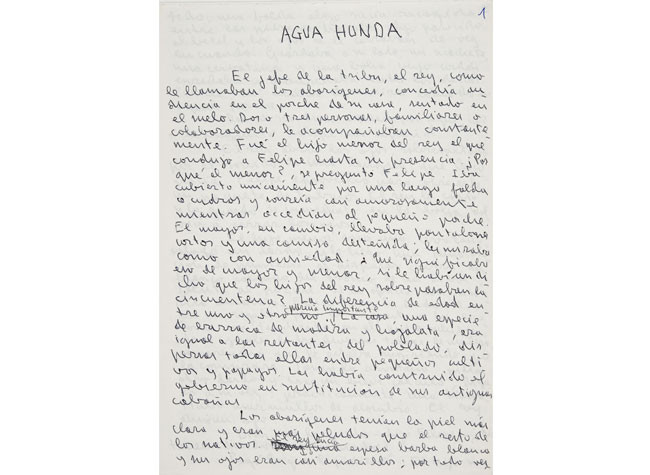 1
AGUA HONDA
El jefe de la tribu, el rey, como
le llamaban los aborígenes, concedía au-
diencia en el porche de su casa, sentado en
el suelo. Dos o tres personas, familiares o
colaboradores, le acompañaban constante-
mente. Fué el hijo menor del rey el que
condujo a Felipe hasta su presencia. ¿Por
qué el menor?, se preguntó Felipe. Iba
cubierto únicamente por una larga falda
a cuadros y sonreía casi amorosamente
mientras accedían al pequeño porche.
El mayor, en cambio, llevaba pantalones
cortos y una camisa desteñida; les miraba
como con ansiedad. ¿Qué significaba
eso de mayor y menor, si le habían di-
cho que los hijos del rey sobrepasaban la
cincuentena? La diferencia de edad en-
parecía importante
tre uno y otro no La casa, una especie
de barraca de madera y hojalata, era
igual a las restantes del poblado, dis-
persas todas ellas entre pequeños culti-
vos y papayos. Las había construido el
gobierno en sustitución de sus antiguas
cabañas.
Los aborígenes tenían la piel más
clara y eran más peludos que el resto de
los nativos. espesa barba blanca
y sus ojos eran casi amarillos; por todo